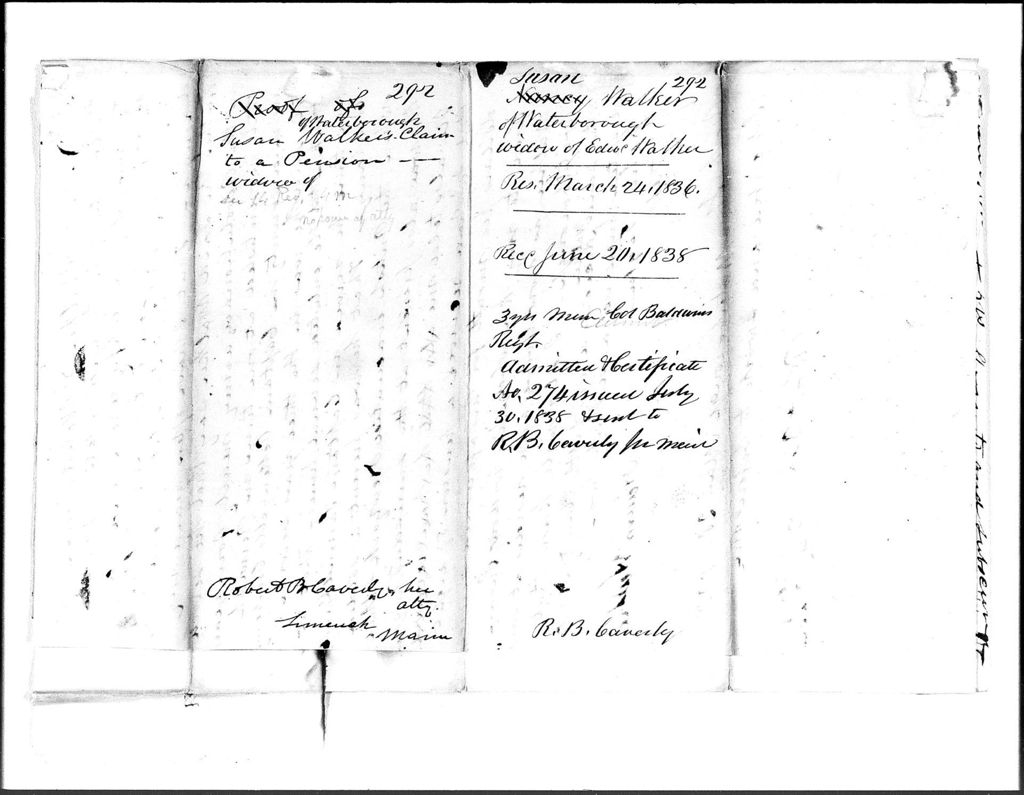 292
Proof of
of Waterborough
Susan Walker's Claim
to a Pension —
widow of
no power of atty
Robert B Caverly, her
atty.
Limerick
Maine
Susan 292
Nancy Walker
of Waterborough
widow of Edwd Walker
Res. March 24, 1836.
Recd June 20, 1838
3 yrs Men Col Baldwins
Regt.
Admitted & Certificate
No. 274 issued July
30, 1838 & sent to
R. B. Caverly
R. B. Caverly